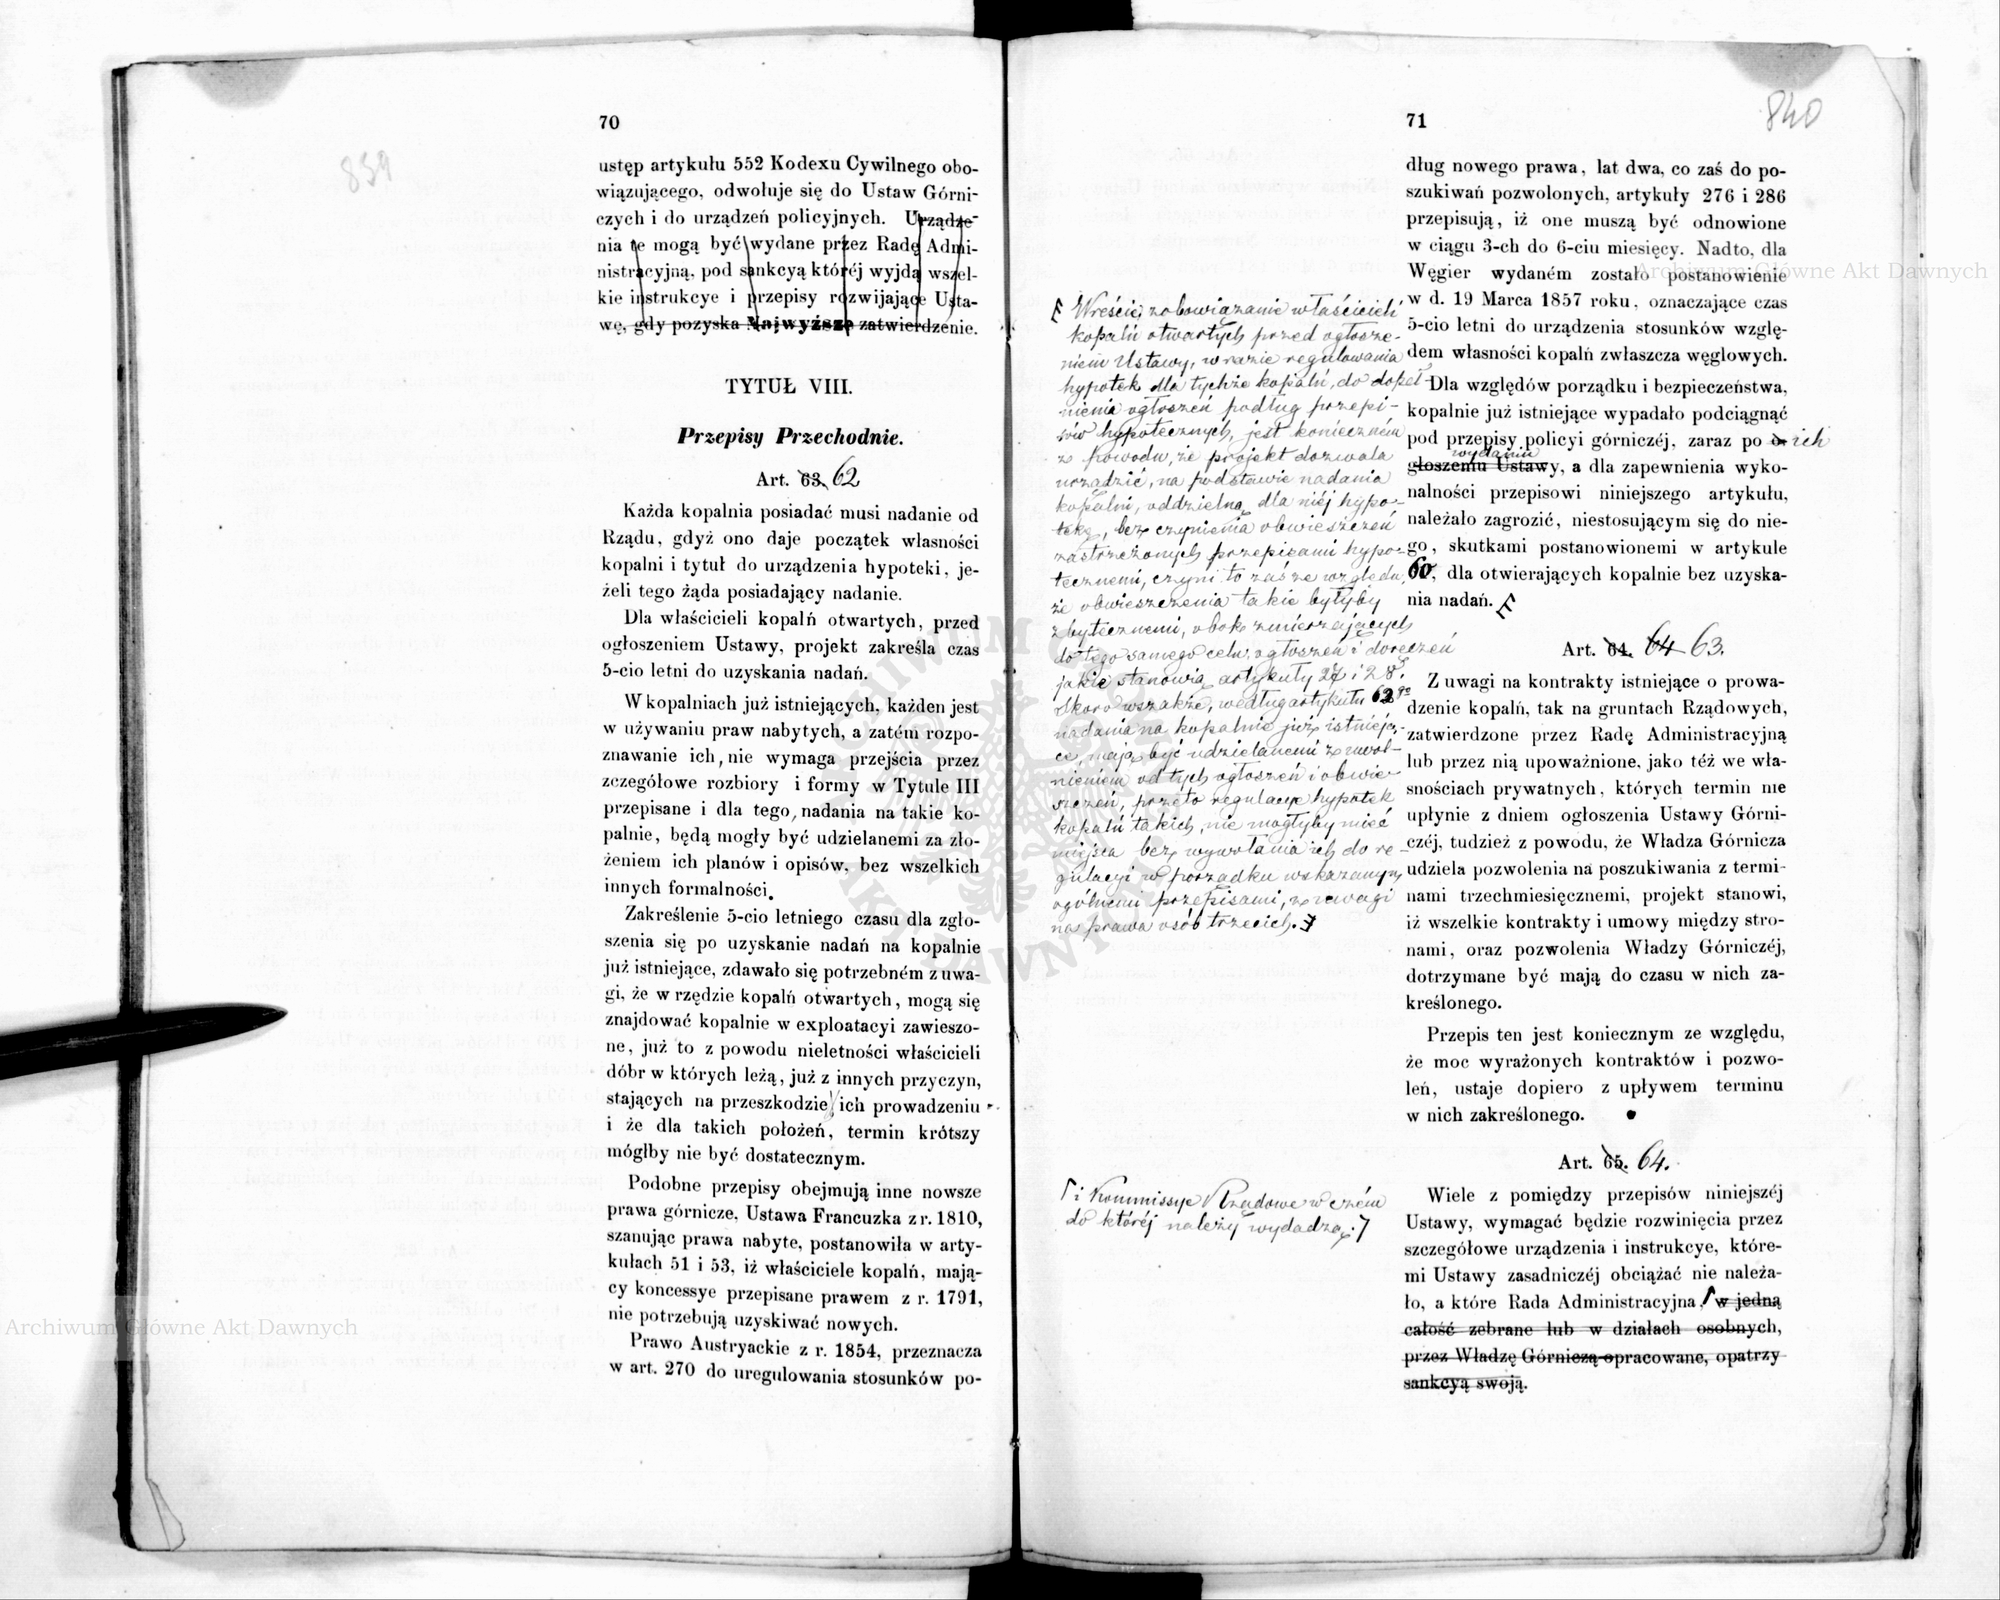 70
839
ustęp artykułu 552 Kodexu Cywilnego obo-
wiązującego, odwołuje się do Ustaw Górni-
czych i do urządzeń policyjnych. Urządze-
nia te mogą być wydane przez Radę Admi-
nistracyjną, pod sankcyą któréj wyjdą wszel-
kie instrukcye i przepisy rozwijające Usta-
wę, gdy pozyska Najwyższe zatwierdzenie.
TYTUŁ VIII.
Przepisy Przechodnie.
Art. 63. 62
Każda kopalnia posiadać musi nadanie od
Rządu, gdyż ono daje początek własności
kopalni i tytuł do urządzenia hypoteki, je-
żeli tego żąda posiadający nadanie.
Dla właścicieli kopalń otwartych, przed
ogłoszeniem Ustawy, projekt zakreśla czas
5-cio letni do uzyskania nadań.
W kopalniach już istniejących, każden jest
w używaniu praw nabytych, a zatém rozpo-
znawanie ich, nie wymaga przejścia przez
szczegółowe rozbiory i formy w Tytule III
przepisane i dla tego, nadania na takie ko-
palnie, będą mogły być udzielanemi za zło-
żeniem ich planów i opisów, bez wszelkich
innych formalności.
Zakreślenie 5-cio letniego czasu dla zgło-
szenia się po uzyskanie nadań na kopalnie
już istniejące, zdawało się potrzebném z uwa-
gi, że w rzędzie kopalń otwartych, mogą się
znajdować kopalnie w exploatacyi zawieszo-
ne, już to z powodu nieletności właścicieli
dóbr w których leżą, już z innych przyczyn,
stających na przeszkodzie ich prowadzeniu
i że dla takich położeń, termin krótszy
mógłby nie być dostatecznym.
Podobne przepisy obejmują inne nowsze
prawa górnicze, Ustawa Francuzka z r. 1810,
szanując prawa nabyte, postanowiła w arty-
kułach 51 i 53, iż właściciele kopalń, mają-
cy koncessye przepisane prawem z r. 1791,
nie potrzebują uzyskiwać nowych.
Prawo Austryackie z r. 1854, przeznacza
w art. 270 do uregulowania stosunków po-
71
840
dług nowego prawa, lat dwa, co zaś do po-
szukiwań pozwolonych, artykuły 276 i 286
przepisują, iż one muszą być odnowione
w ciągu 3-ch do 6-ciu miesięcy. Nadto, dla
Węgier wydaném zostało postanowienie
w d. 19 Marca 1857 roku, oznaczające czas
5-cio letni do urządzenia stosunków wzglę-
dem własności kopalń zwłaszcza węglowych.
Dla względów porządku i bezpieczeństwa,
kopalnie już istniejące wypadało podciągnąć
pod przepisy policyi górniczéj, zaraz po o- ich
wydaniu
głoszeniu Ustawy, a dla zapewnienia wyko-
nalności przepisowi niniejszego artykułu,
należało zagrozić, niestosującym się do nie-
go, skutkami postanowionemi w artykule
60, dla otwierających kopalnie bez uzyska-
nia nadań.
Wreście, zobowiązanie właścicieli
kopalń otwartych przed ogłosze-
niem Ustawy, w razie regulowania
hypotek dla tychże kopalń, do dopeł-
nienia ogłoszeń podług przepi-
sów hypotecznych, jest koniecznem
z powodu, że projekt dozwala
urządzić, na podstawie nadania
kopalni, oddzielną dla niéj hypo-
tekę, bez czynienia obwieszczeń
zastrzeżonych przepisami hypo-
tecznemi, czyni to zaś ze względu,
że obwieszczenia takie byłyby
zbytecznemi, obok zmierzających
do tego samego celu, ogłoszeń i doręczeń
jakie stanowią artykuły 27 i 28.
Skoro wszakże, według artykułu 62go
nadania na kopalnie już istnieją-
ce, mają być udzielanemi z uwol-
nieniem od tych ogłoszeń i obwie-
szczeń, przeto regulacye hypotek
kopalń takich, nie mogłyby mieć
miejsca bez wywołania ich do re-
gulacyi w porządku wskazanym
ogólnemi przepisami, z uwagi
na prawa osób trzecich.
Art. 64. 64 63.
Z uwagi na kontrakty istniejące o prowa-
dzenie kopalń, tak na gruntach Rządowych,
zatwierdzone przez Radę Administracyjną
lub przez nią upoważnione, jako téż we wła-
snościach prywatnych, których termin nie
upłynie z dniem ogłoszenia Ustawy Górni-
czéj, tudzież z powodu, że Władza Górnicza
udziela pozwolenia na poszukiwania z termi-
nami trzechmiesięcznemi, projekt stanowi,
iż wszelkie kontrakty i umowy między stro-
nami, oraz pozwolenia Władzy Górniczéj,
dotrzymane być mają do czasu w nich za-
kreślonego.
Przepis ten jest koniecznym ze względu,
że moc wyrażonych kontraktów i pozwo-
leń, ustaje dopiero z upływem terminu
w nich zakreślonego.
Art. 65. 64.
Wiele z pomiędzy przepisów niniejszéj
Ustawy, wymagać będzie rozwinięcia przez
szczegółowe urządzenia i instrukcye, które-
mi Ustawy zasadniczéj obciążać nie należa-
ło, a które Rada Administracyjna, w jedną
całość zebrane lub w działach osobnych,
przez Władzę Górniczą opracowane, opatrzy
sankcyą swoją.
i Kommissye Rządowe w czém
do któréj należy wydadzą.
Archiwum Główne Akt Dawnych
Archiwum Główne Akt Dawnych
ARCHIWUM GŁÓWNE AKT DAWNYCH